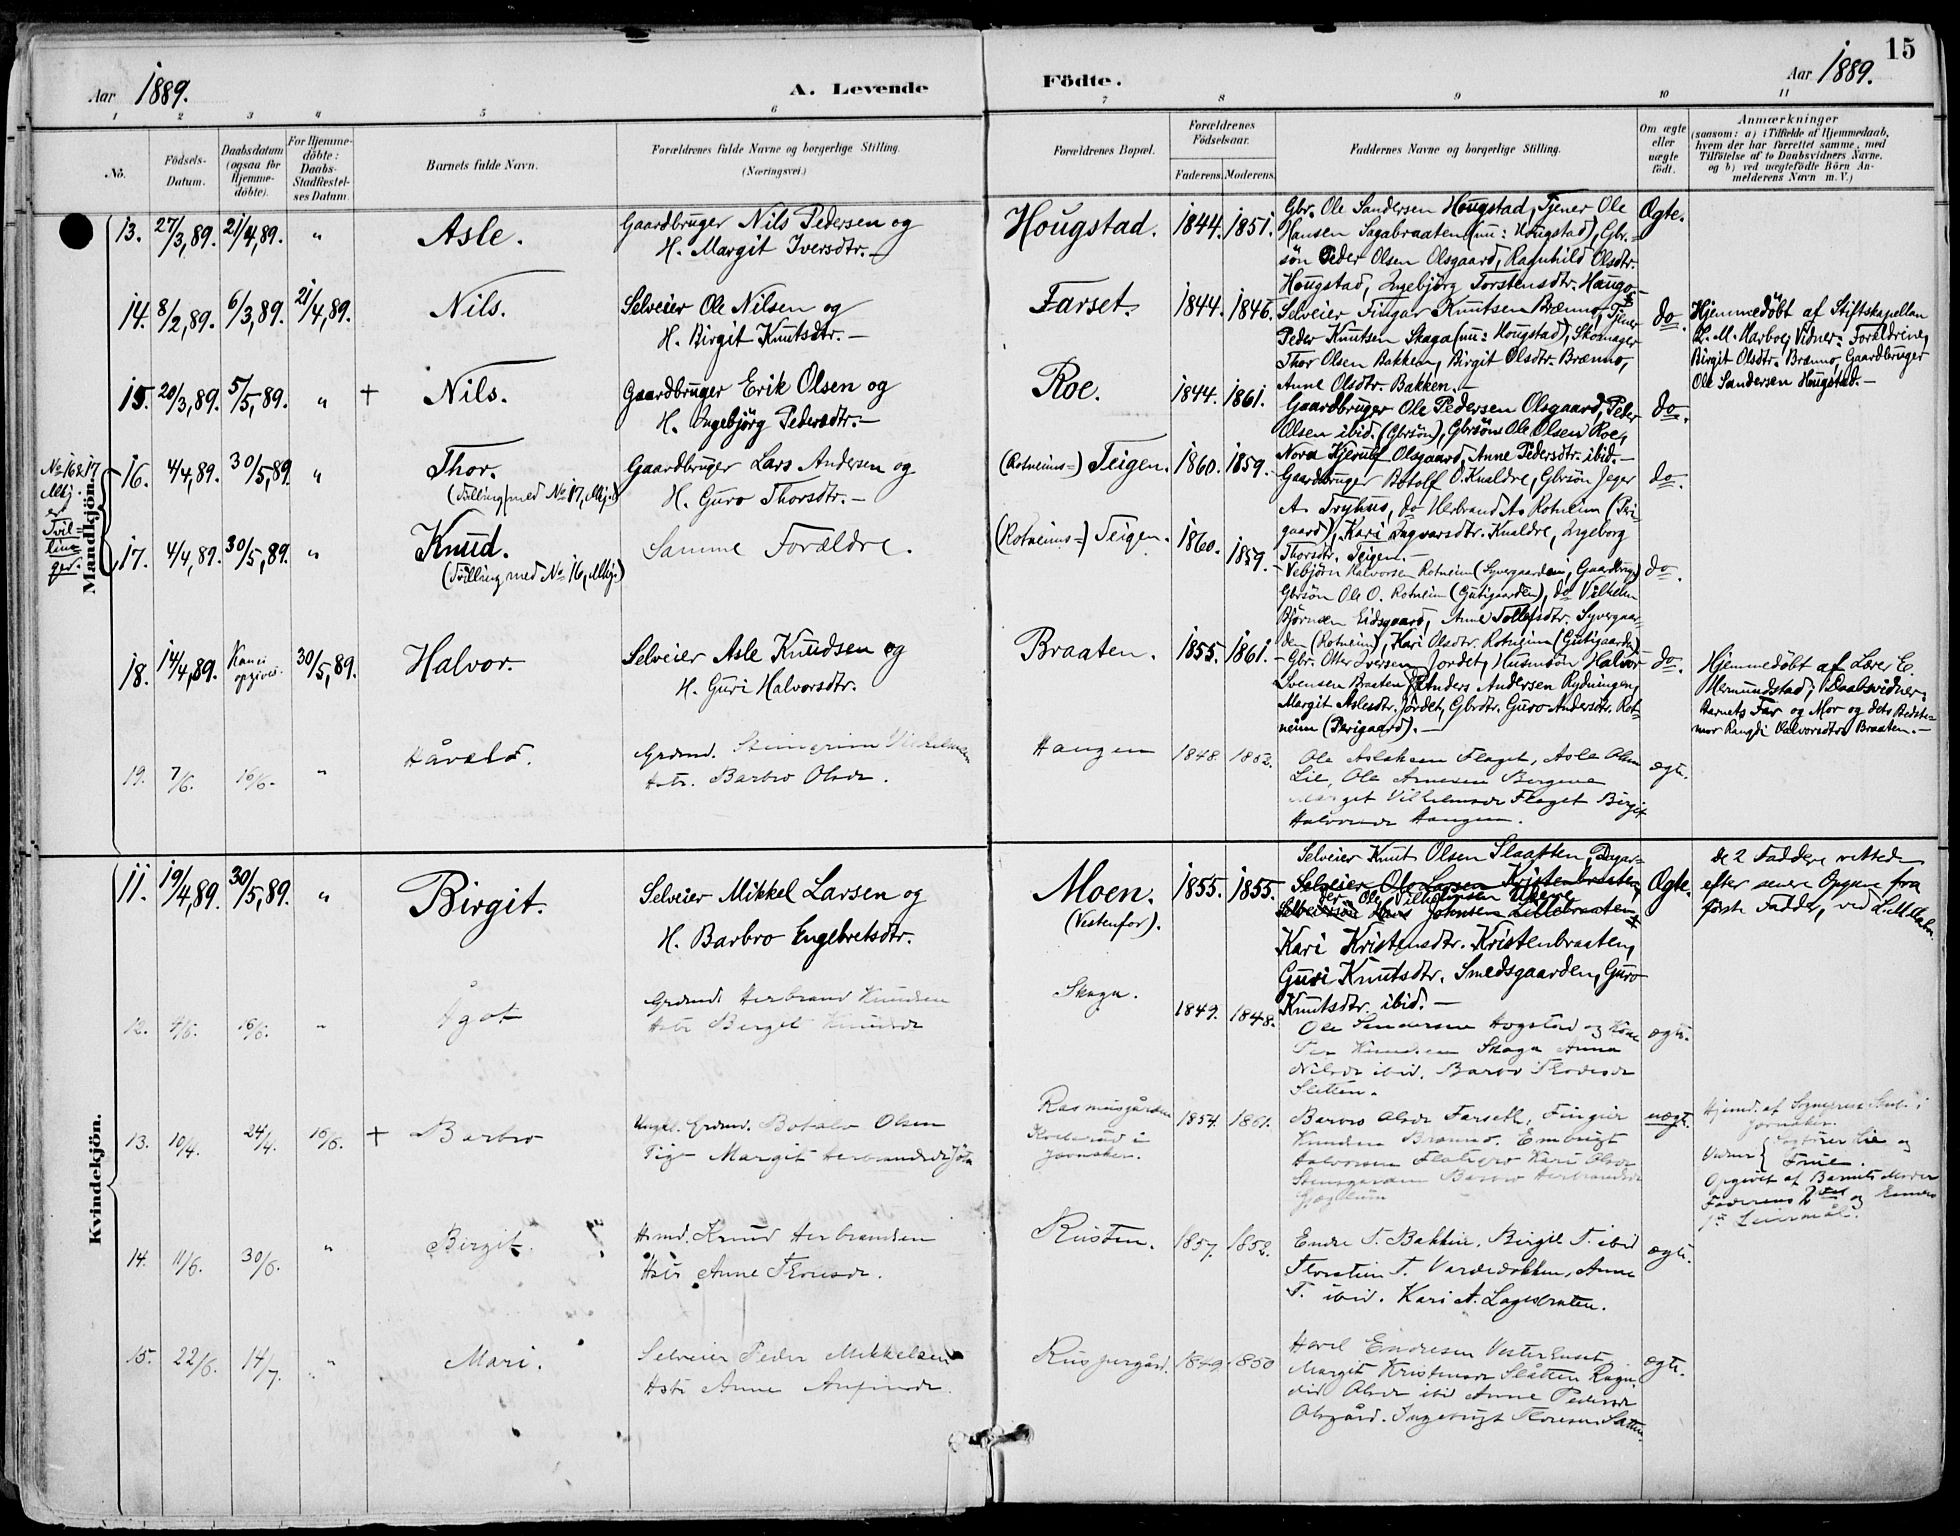 15
Aar 1889. A. Levende Födte. Aar 1889.
1 2 3 4 5 6 7 8 9 10 11
No. Födsels-Datum. Daabsdatum (ogsaa for Hjemmedöbte). For Hjemmedöbte: Daabs-Stadfæstelses Datum. Barnets fulde Navn. Forældrenes fulde Navne og borgerlige Stilling. (Næringsvei.) Forældrenes Bopæl. Forældrenes Födselsaar. Faderens. Moderens. Faddernes Navne og borgerlige Stilling. Om ægte eller uægte födt. Anmærkninger (saasom: a) i Tilfælde af Hjemmedaab, hvem der har forrettet samme, med Tilföielse af to Daabsvidners Navne, og b) ved uægtefödte Börn Anmelderens Navn m. V.)
Mandkjön.
No 16 & 17 Mkj. er Tvillinger.
13. 27/3,89. 21/4,89. " Asle.
Gaardbruger Nils Pedersen og
H. Margit Iversdtr. —
Hougstad. 1844. 1851.
Gbr. Ole Sandersen Hougstad, Tjener Ole
Hansen Sagabraaten (nu: Hougstad), Gbr.=
sön Peder Olsen Olsgaard, Ragnhild Olsdtr.
Hougstad, Ingebjörg Torstensdtr. Haugo.
Ægte.
14. 8/2,89. 6/3,89. 21/4,89. Nils.
Selveier Ole Nilsen og
H. Birgit Knutsdtr. —
Farset. 1844. 1846.
Selveier Fingar Knutsen Brænno, Tjener
Peder Knutsen Skaga (nu: Hougstad), Skomager
Thor Olsen Bakken, Birgit Olsdtr. Brænno,
Anne Olsdtr. Bakken. —
do.
Hjemmedöbt af Stiftskapellan
L. M. Harboe; Vidner: Forældrene,
Birgit Olsdtr. Brænno, Gaardbruger
Ole Sandersen Hougstad. —
15. 20/3,89. 5/5,89. " + Nils.
Gaardbruger Erik Olsen og
H. Ingebjörg Pedersdtr. —
Roe. 1844. 1861.
Gaardbruger Ole Pedersen Olsgaard, Peder
Olsen ibid. (Gbrsön), Gbrsön Ole Olsen Roe,
Nora Kjerulf Olsgaard, Anne Pedersdtr. ibid. —
do.
16. 4/4,89. 30/5,89. " Thor.
(Tvilling med No 17, Mkj.)
Gaardbruger Lars Andersen og
H. Guro Thorsdtr. —
(Rotneims=) Teigen. 1860. 1859.
Gaardbruger Botolf O. Kualdre, Gbrsön Jeger
A. Tryhus, do Herbrand A. Rotneim (Peri-
gaard), Kari Ingvarsdtr. Kualdre, Ingeborg
Thorsdtr. Teigen. —
do.
17. 4/4,89. 30/5,89. " Knud.
(Tvilling med No 16, Mkj.)
Samme Forældre.
(Rotneims=) Teigen. 1860. 1859.
Vebjörn Halvorsen Rotneim (Syvergaarden), Gaardbruger
Gbrsön Ole O. Rotneim (Gutigaarden), do Vilhelm
Björnsen Eidsgaard, Anne Tollefsdtr. Syvergaar-
den (Rotneim), Kari Olsdtr. Rotneim (Gutigaarden)
do.
18. 14/4,89. Kan ei opgives. 30/5,89. Halvor.
Selveier Asle Knudsen og
H. Guri Halvorsdtr.
Braaten. 1855. 1861.
Gbr. Otter Iversen Jordet, Husmsön Halvor
Svensen Braaten, Anders Andersen Rydningen,
Margit Aslesdtr. Jordet, Gbrdtr. Guro Andersdtr. Rot-
neim (Perigaard). —
do.
Hjemmedöbt af Lærer E.
Hermundstad; Daabsvidner:
Barnets Far og Mor og dets Bedste-
mor Rangdi Halvorsdtr. Braaten. —
19. 7/6. 16/6. " Håvald.
Grdmd. Steingrim Vilhelmsen
Hstr. Barbro Olsdr.
Haugen 1848. 1852.
Ole Aslaksen Flaget, Asle Olsen
Lie, Ole Arnesen Bergene
Marget Vilhelmsdr Flaget Birgit
Halvorsdr Haugen.
ægte.
Kvindekjön.
11. 19/4,89. 30/5,89. " Birgit.
Selveier Mikkel Larsen og
H. Barbro Engebretsdtr.
Moen.
(Vestenfor).
1855. 1855.
Selveier Knut Olsen Slaatten,
Selveier Ole Larsen Kristenbraaten,
Ole Vilhelmsen
Selveiersön Hans Johnsen Lillebraaten,
Kari Kristensdtr. Kristenbraaten,
Guri Knutsdtr. Smedsgaarden, Guro
Knutsdtr. ibid. —
Ægte.
De 2 Faddere rettede
efter senere Opgave fra
förste Fadder, ved
12. 4/5. 16/6. " Ågot
Grdmd. Herbrand Knudsen
Hstr Berget Knudsdr
Skaga. 1849. 1848.
Ole Sandersen Hogstad og Kone
Per Knudsen Skaga Anna
Nilsdr ibid. Barbo Thordsdr
Sletten.
ægte.
13. 10/4. 24/4. 16/6. + Barbro
Ungk. Grdmd. Botolv Olsen
Pige Margit Herbrandsdr
Rasmusgården
i
Jevnaker.
1854. 1861.
Barbro Olsdr Farseth, Fingar
Knudsen Brænno, Embrigt
Halvorsen Kari Olsdr
Stensgarden Barbro Herbrandsdr
uægte.
Hjemd. af Sognepræst i
Jevnaker.
Vidner { Lie og
Frue.
Opgivet af Barnets Moder
Faderens 2det og Hendes
1ste Leiermål.
14. 11/6. 30/6. " Birgit.
Hsmd. Knud Herbrandsen
Hstr Anne Thorsdr.
Rusten. 1857. 1852.
Endre T. Bakken, Birgit T. ibid
Thorstein T. Vardedokken, Anne
T. ibid. Kari A. Lagesbraten.
ægte.
15. 22/6. 14/7. " Mari.
Selveier Peder Mikkelsen
Hstr Anne Anfinsdr.
Ruspergård. 1849. 1850
Havel Endresen Vesterenset
Margit Kristensdr Slåtten Ragn-
did Olsdr ibid Anne Pedersdr
Olsgård. Ingebrigt Thoresen Slåtten.
ægte.